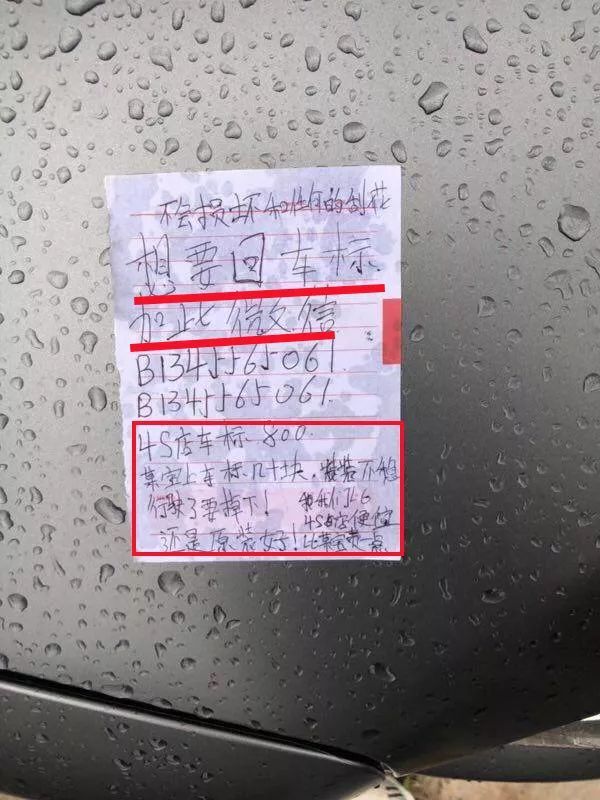 不会损坏和任何的刮花
想要回车标
加此微信
B1345565061.
B1345565061.
4S店车标800.
某宝上车标几十块,装不稳
行驶了要掉下!
我们比
4S店便宜
还是原装好!比某宝贵点